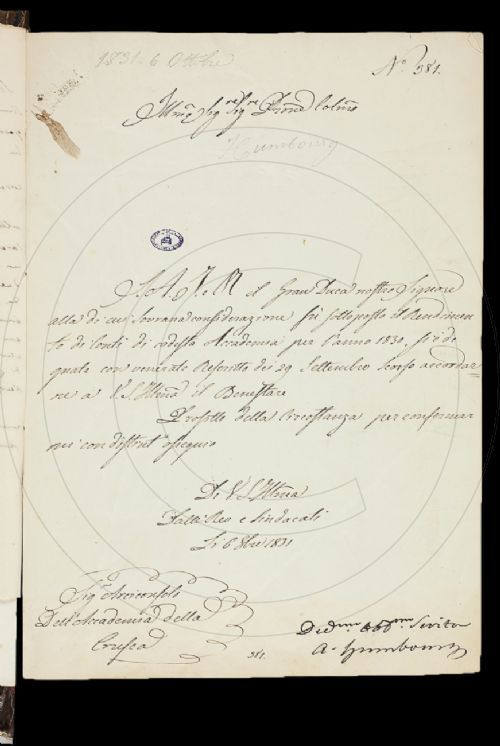 1831. 6 Ottbre
No. 381.
Illmo Sigre Sigre Prone Colmo
Humbourg
S. A. I. e R. il Gran Duca nostro Signore
alla di cui Sovrana considerazione fu sottoposto il Rendimen
to di Conti di codesta Accademia per l'anno 1830, si è de
gnata con venerato Rescritto de' 29 Settembre scorso accordar
ne a V. S. Illma il Benestare
Profitto della Circostanza per confermar
mi con distint° ossequio
Di V. S. Illma
Dalle Rev e Sindacati
Li 6 8bre 1831
Sigre Arciconsolo
Dell'Accademia della
Crusca
381.
Devmo Obbmo Servitore
A. Humbourg